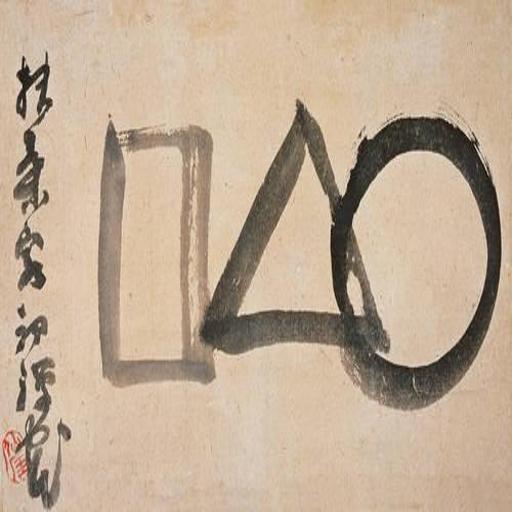 扶桑最初禅窟